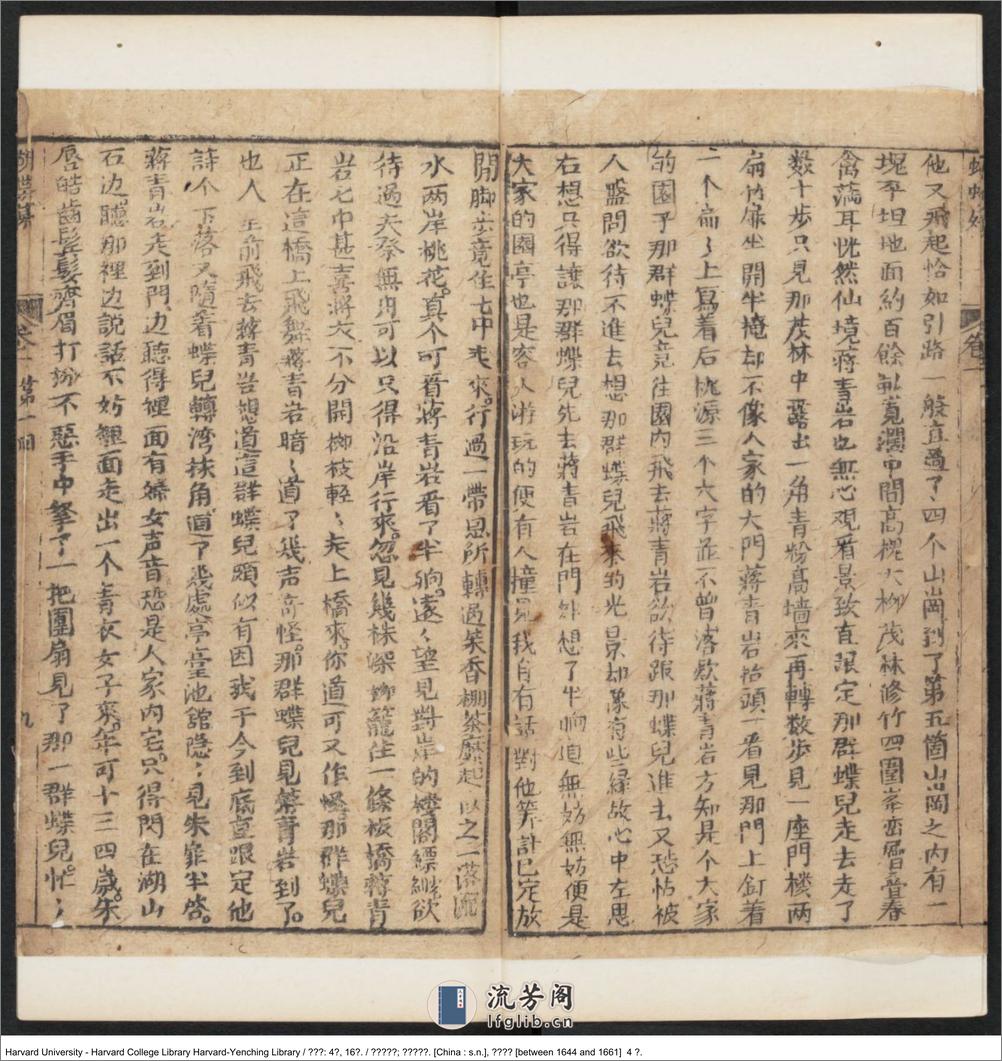 他又飛起恰如引路一般直過了四个山崗到了第五箇山岡之内有一
塊平坦地面約百餘畝寬濶中間高槐大柳茂林修竹四圍峯巒層疊春
禽滿耳恍然仙境蔣青岩也無心观看景致直跟定那群蝶兒走去走了
数十步只見那茂林中露出一角青粉高墻來再轉数步見一座門楼两
扇竹扉坐開半掩却不像人家的大門蔣青岩抬頭一看見那門上釘着
一个扁扁上寫着后桃源三个大字並不曾落欵蔣青岩方知是个大家
的園子那群蝶兒竟往園内飛去蔣青岩欲待跟那蝶兒進去又恐怕被
人盤問欲待不進去想那群蝶兒飛來的光景却像有些縁故心中左思
右想只得讓那群蝶兒先去蔣青岩在門外想了半晌道無妨無妨便是
大家的園亭也是客人游玩的便有人撞見我自有話對他筭計已定放
開脚步竟往七中走來行過一帶 所轉過 香棚茶 以之一落
水两岸桃花真个可看蔣青岩看了半晌遠〻望見對岸的楼閣縹緲欲
待過去奈無舟可以只得沿岸行來忽見幾株深柳籠住一條板橋蔣青
岩七中甚喜將 不分開柳枝輕〻走上橋來你道可又作怪那群蝶兒
正在這橋上飛舞蔣青岩暗〻道了幾声奇怪那群蝶兒見蔣青岩到了
也人 前飛去蔣青岩想道這群蝶兒頗似有因我于今到底直跟定他
詩个下落又隨着蝶兒轉湾抹角過了幾處亭臺池舘隐〻見朱扉半啓
蔣青岩走到門边聽得裡面有婦女声音恐是人家内宅只得閃在湖山
石边聽那裡边說話不妨裡面走出一个青衣女子來年可十三四歲朱
唇皓齒髮鬢齊眉打扮不惡手中拏了一把團扇見了那一群蝶兒忙〻
蝴蝶媒
卷一
第一囬
九
流芳阁
lfglib.cn
Harvard University - Harvard College Library Harvard-Yenching Library / ???: 4?, 16?. / ?????; ?????. [China : s.n.], ???? [between 1644 and 1661] 4 ?.